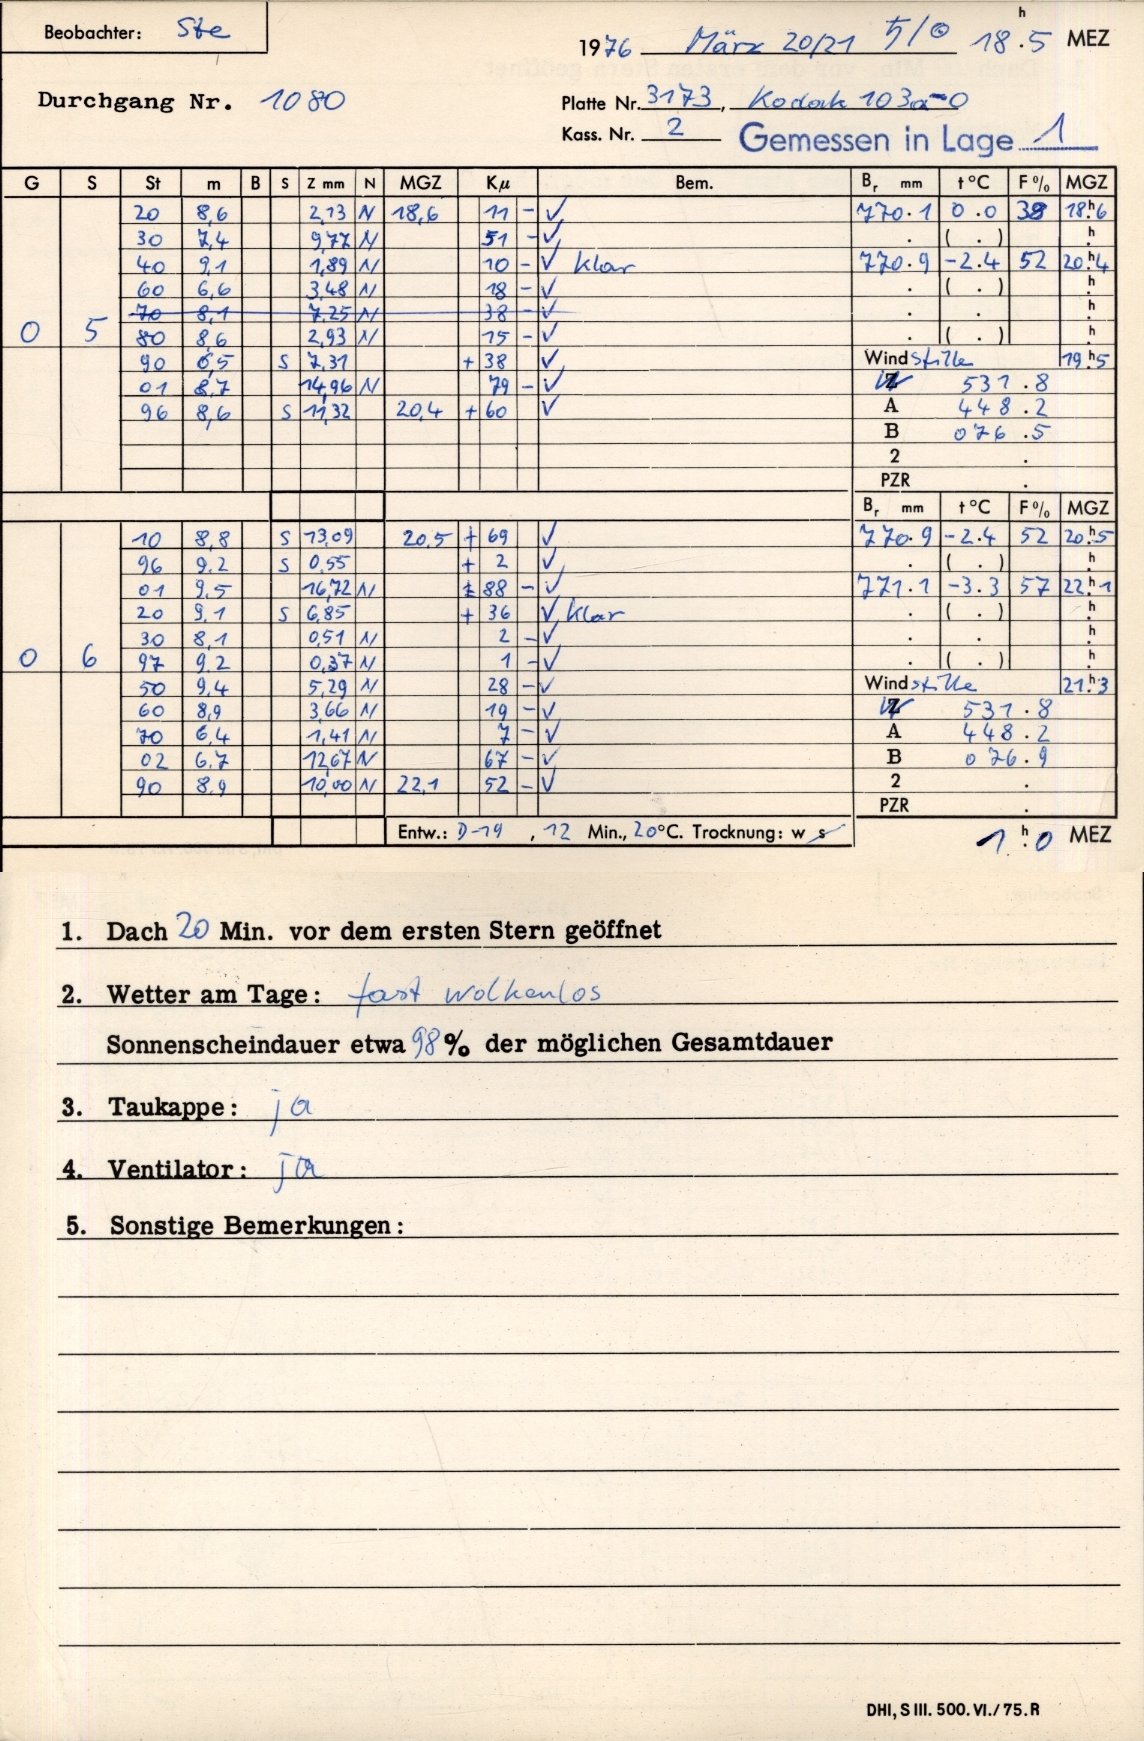 Beobachter: Ste
1976 März 20/21 5/6 18.5 h MEZ
Durchgang Nr. 1080
Platte Nr. 3173, Kodak 103a-O
Kass. Nr. 2 Gemessen in Lage 1
G S St m B S Z mm N MGZ Kμ Bem. Br mm t °C F % MGZ
20 8,6 2,13 N 18,6 11 - ✓ 770.1 0.0 38 18.6 h
30 7,4 9,77 N 51 - ✓ . ( . ) h
40 9,1 1,89 N 10 - ✓ klar 770.9 -2.4 52 20.4 h
60 6,6 3,48 N 18 - ✓ . ( . ) h
70 8,1 7,25 N 38 - ✓ . . h
0 5 80 8,6 2,93 N 15 - ✓ . ( . ) h
90 6,5 S 7,31 + 38 ✓ Windstille 19.5 h
01 8,7 14,96 N 79 - ✓ 531.8
96 8,6 S 11,32 20,4 + 60 ✓ A 448.2
B 076.5
2 .
PZR .
Br mm t °C F % MGZ
10 8,8 S 13,09 20,5 + 69 ✓ 770.9 -2.4 52 20.5 h
96 9,2 S 0,55 + 2 ✓ . ( . ) h
01 9,5 16,72 N 88 - ✓ 771.1 -3.3 57 22.1 h
20 9,1 S 6,85 + 36 ✓ klar . ( . ) h
30 8,1 0,51 N 2 - ✓ . . h
0 6 97 9,2 0,37 N 1 - ✓ . ( . ) h
50 9,4 5,29 N 28 - ✓ Windstille 21.3 h
60 8,9 3,66 N 19 - ✓ 531.8
70 6,4 1,41 N 7 - ✓ A 448.2
02 6,7 12,67 N 67 - ✓ B 076.9
90 8,9 10,00 N 22,1 52 - ✓ 2 .
PZR .
Entw.: D-19, 12 Min., 20°C. Trocknung: w s 1.0 h MEZ
1. Dach 20 Min. vor dem ersten Stern geöffnet
2. Wetter am Tage: fast wolkenlos
Sonnenscheindauer etwa 98% der möglichen Gesamtdauer
3. Taukappe: ja
4. Ventilator: ja
5. Sonstige Bemerkungen:
DHI, S III. 500. VI./75. R